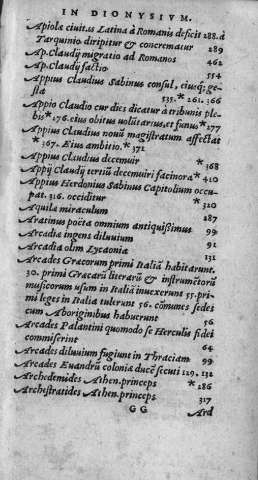 IN DIONYSIVM.
Apiola ciuitas Latina à Romanis deficit 288. à
Tarquinio diripitur & concrematur 289
Ap. Claudij migratio ad Romanos 462
Ap. Claudij factio 554
Appius Claudius Sabinus consul, eiusq; ge-
sta 535.* 261. 366
Appio Claudio cur dies dicatur à tribunis ple-
bis* 276. eius obitus volūtarius, et funus,* 277
Appius Claudius nouū magistratum affectat
* 367. Eius ambitio.* 371
Appius Claudius decemuir * 368
Appij Claudij tertiū decemuiri facinora * 410
Appius Herdonius Sabinus Capitolium occu-
pat. 316. occiditur * 320
Aquila miraculum 287
Aratinus poëta omnium antiquissimus 99
Arcadia ingens diluuium 91
Arcadia olim Lycaonia 131
Arcades Græcorum primi Italiā habitarunt.
30. primi Græcarū literarū & instrumētorū
musicorum vsum in Italiā inuexerunt 55. pri-
mi leges in Italia tulerunt 56. cōmunes sedes
cum Aboriginibus habuerunt 56
Arcades Palantini quomodo se Herculis fidei
commiserint 64
Arcades diluuium fugiunt in Thraciam 99
Arcades Euandrū coloniæ ducē secuti 129. 132
Archedemides Athen. princeps * 286
Archestratides Athen. princeps 317
GG Ard